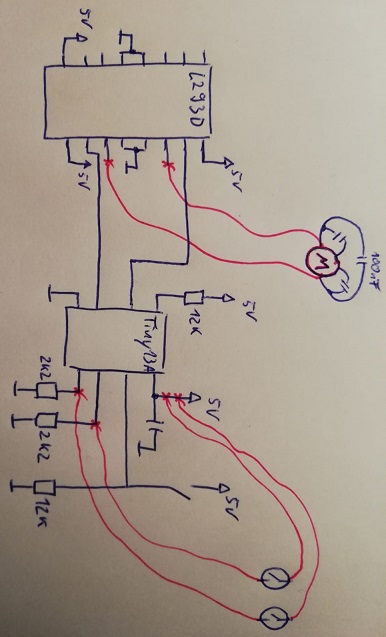 5V
L293D
5V
5V
M
100nF
5V
12K
Tiny13A
5V
2K2
2K2
12K
5V